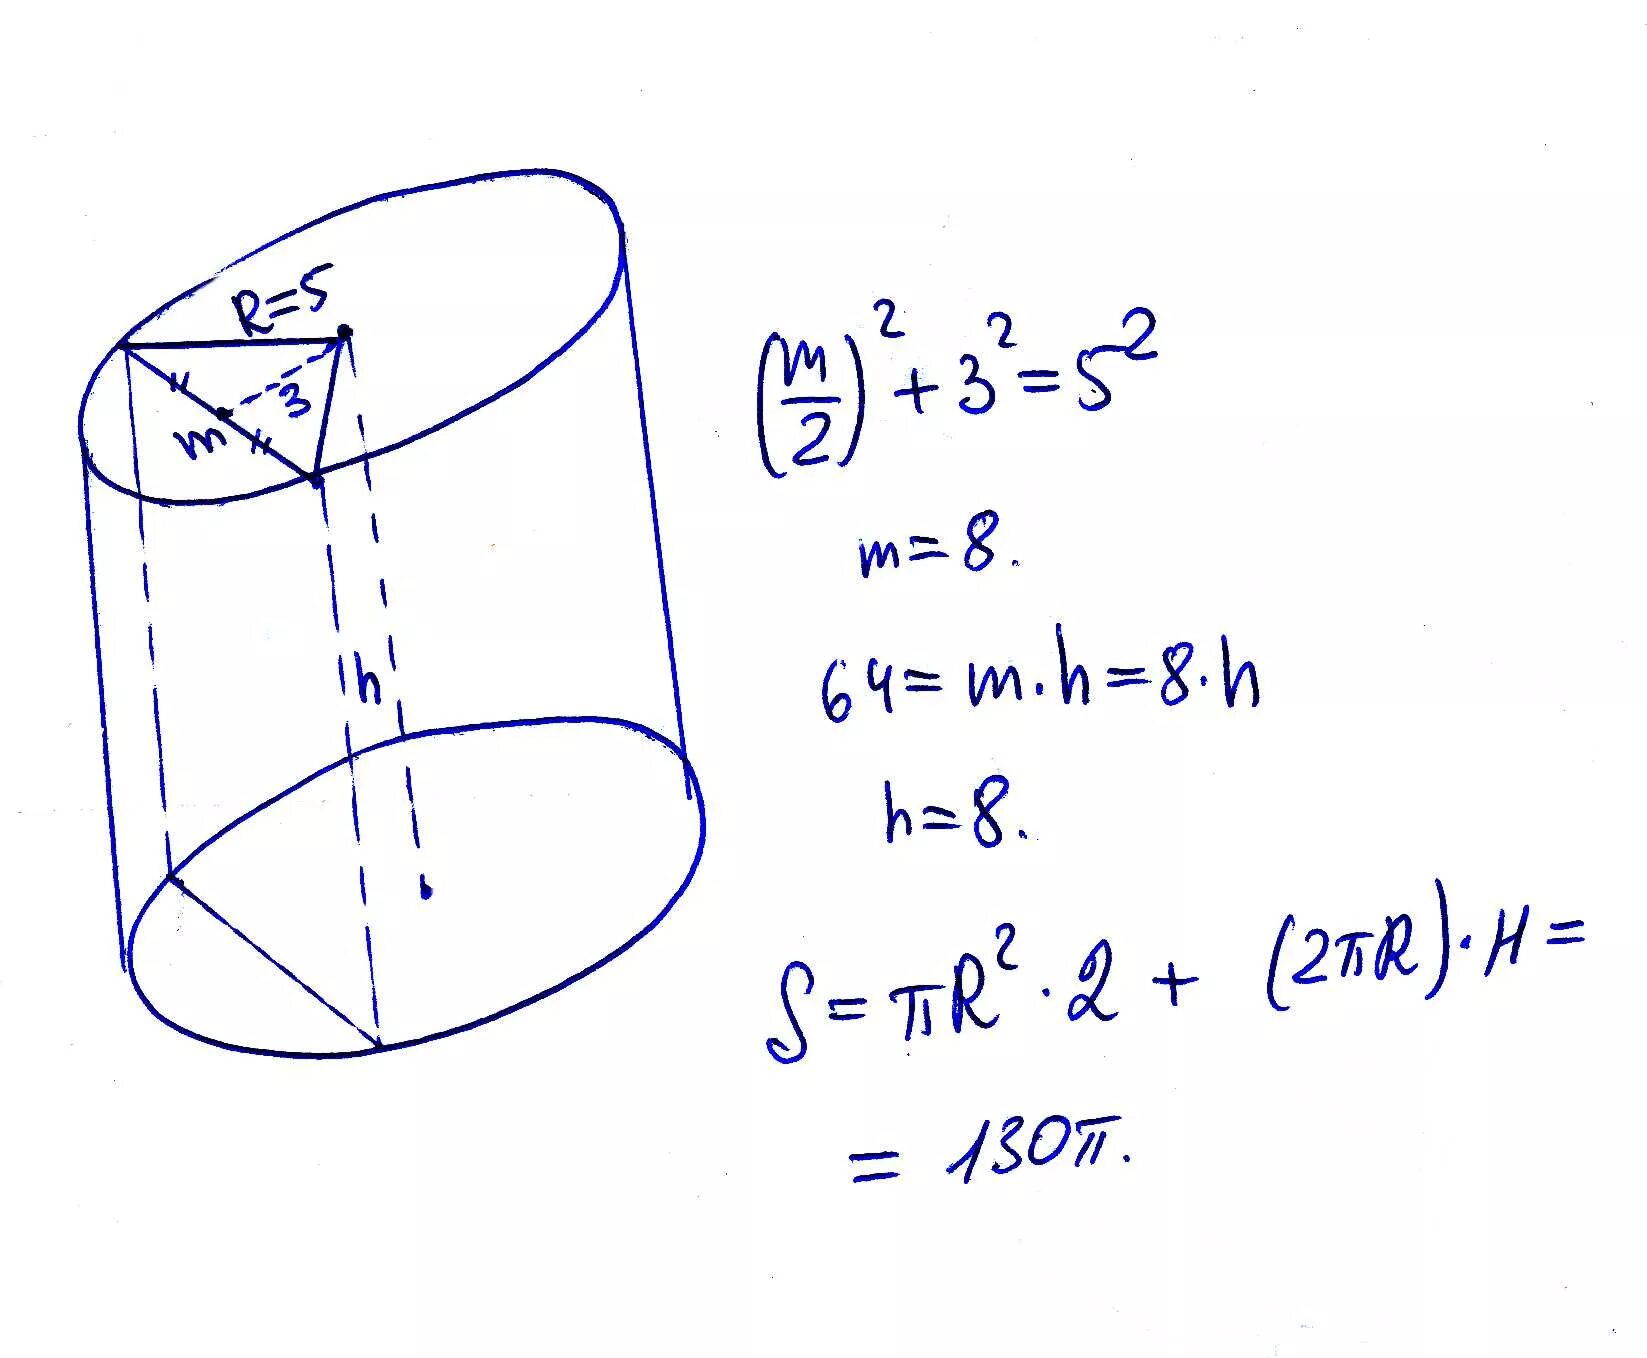 R=5
3
m
h
(m/2)² + 3² = 5²
m = 8.
64 = m · h = 8 · h
h = 8.
S = πR² · 2 + (2πR) · H =
= 130π.